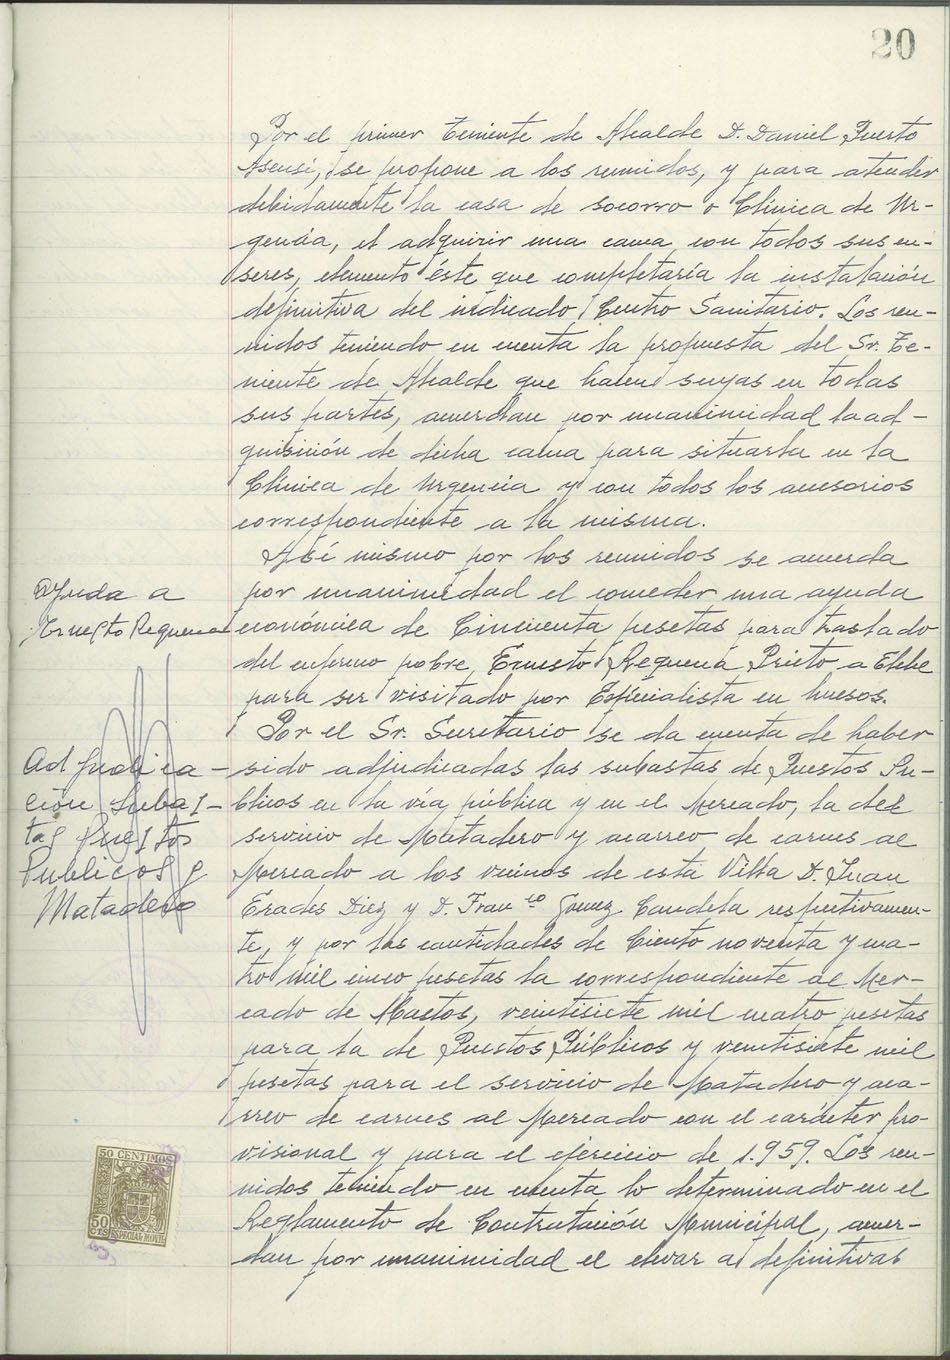 20
Por el primer Teniente de Alcalde D. Daniel Puerto
Asensi, se propone a los reunidos, y para atender
debidamente la casa de socorro o Clínica de Ur-
gencia, el adquirir una cama con todos sus en-
seres, elemento éste que completaría la instalación
definitiva del indicado Centro Sanitario. Los reu-
nidos teniendo en cuenta la propuesta del Sr. Te-
niente de Alcalde que hacen suyas en todas
sus partes, acuerdan por unanimidad la ad-
quisición de dicha cama para situarla en la
Clínica de Urgencia y con todos los accesorios
correspondiente a la misma.
Así mismo por los reunidos se acuerda
ayuda a
Ernesto Requena
por unanimidad el conceder una ayuda
económica de Cincuenta pesetas para traslado
del enfermo pobre, Ernesto Requena Prieto a Elche
para ser visitado por Especialista en huesos.
Por el Sr. Secretario se da cuenta de haber
Adjudica-
ción Subas-
tas Puestos
Publicos y
Matadero
sido adjudicadas las subastas de Puestos Pú-
blicos en la vía pública y en el Mercado, la del
servicio de Matadero y acarreo de carnes al
Mercado a los vecinos de esta Villa D. Juan
Erades Diez y D. Franco Gomez Candela respectivamen-
te, y por las cantidades de Ciento noventa y cua-
tro mil cinco pesetas la correspondiente al Mer-
cado de Abastos, veintisiete mil cuatro pesetas
para la de Puestos Públicos y veintisiete mil
pesetas para el servicio de Matadero y aca-
rreo de carnes al Mercado con el carácter pro-
visional y para el ejercicio de 1.959. Los reu-
nidos teniendo en cuenta lo determinado en el
Reglamento de Contratación Municipal, acuer-
dan por unanimidad el elevar a definitivas
50 CENTIMOS
50
CTS
ESPECIAL MOVIL